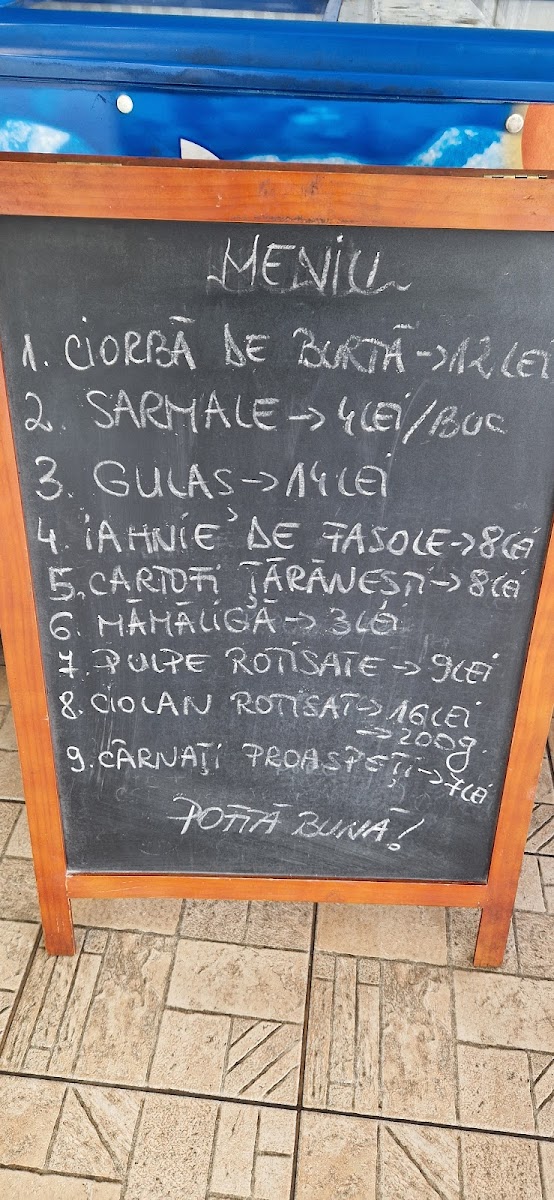 MENIU
1. CIORBĂ DE BURTĂ → 12 LEI
2. SARMALE → 4 LEI/BUC
3. GULAȘ → 14 LEI
4. IAHNIE DE FASOLE → 8 LEI
5. CARTOFI ȚĂRĂNEȘTI → 8 LEI
6. MĂMĂLIGĂ → 3 LEI
7. PULPE ROTISATE → 9 LEI
8. CIOLAN ROTISAT → 16 LEI
→ 200g.
9. CÂRNAȚI PROASPEȚI → 7 LEI
POFTĂ BUNĂ!